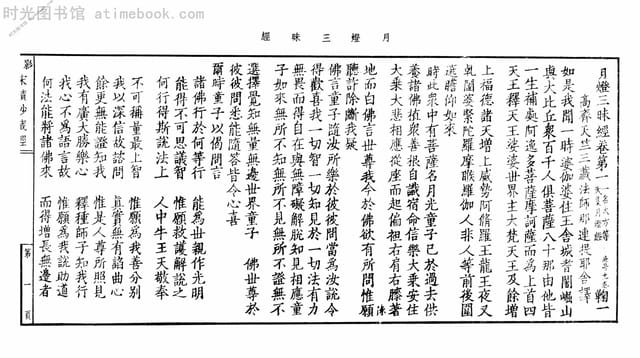 时光图书馆 - atimebook.com
月燈三昧經
月燈三昧經卷第一 一名大方等大集月燈經 鞠一
高齊天竺三藏法師那連提耶舍譯
如是我聞一時婆伽婆住王舍城耆闍崛山
與大比丘衆百千人俱菩薩八十那由他皆
一生補處阿逸多菩薩摩訶薩而為上首四
天王釋天王娑婆世界主大梵天王及餘增
上福德諸天增上威勢阿脩羅王龍王夜叉
乾闥婆緊陀羅摩睺羅伽人非人等前後圍
遶瞻仰如來
時此衆中有菩薩名月光童子已於過去供
養諸佛植衆善根自識宿命信樂大乘安住
大乘大悲相應從座而起偏袒右肩右膝著
地而白佛言世尊我今於佛欲有所問惟願
聽許除斷我疑
佛言童子隨汝所樂於彼彼問當為汝說令
得歡喜我一切智一切知見於一切法有力
無畏而得自在與無障礙解脫知見相應童
子如來無所不知無所不見無所不證無所
選擇覺知無量無邊世界童子 佛世尊於
彼彼問悉能隨答皆令心喜
爾時童子以偈問言
諸佛行於何等行 能為世親作光明
能得不可思議智 惟願救護解說之
何行得斯說法上 人中牛王天敬奉
不可稱量最上智 惟願為我善分別
我以深信故諮問 真實無有諂曲心
餘更無能證知我 惟是人尊所照見
我有廣大勝樂心 釋種師子知我行
我心不為語言故 惟願為我說助道
何法能將諸佛來 而得增長無邊者
影宋磧砂藏經
第一頁